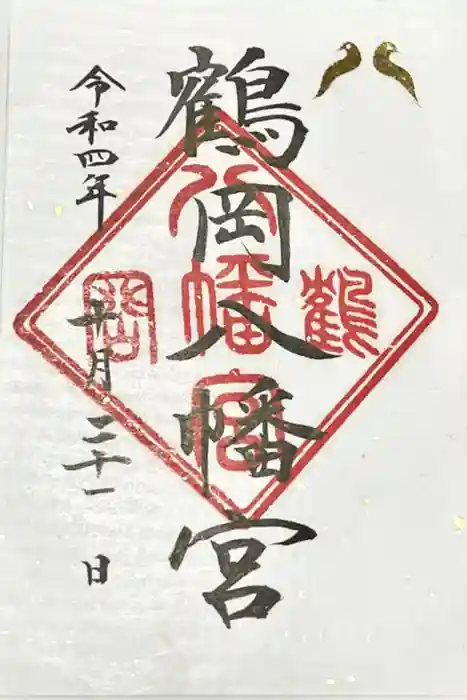 鶴岡八幡宮
令和四年十月三十一日
鶴
八幡宮
岡